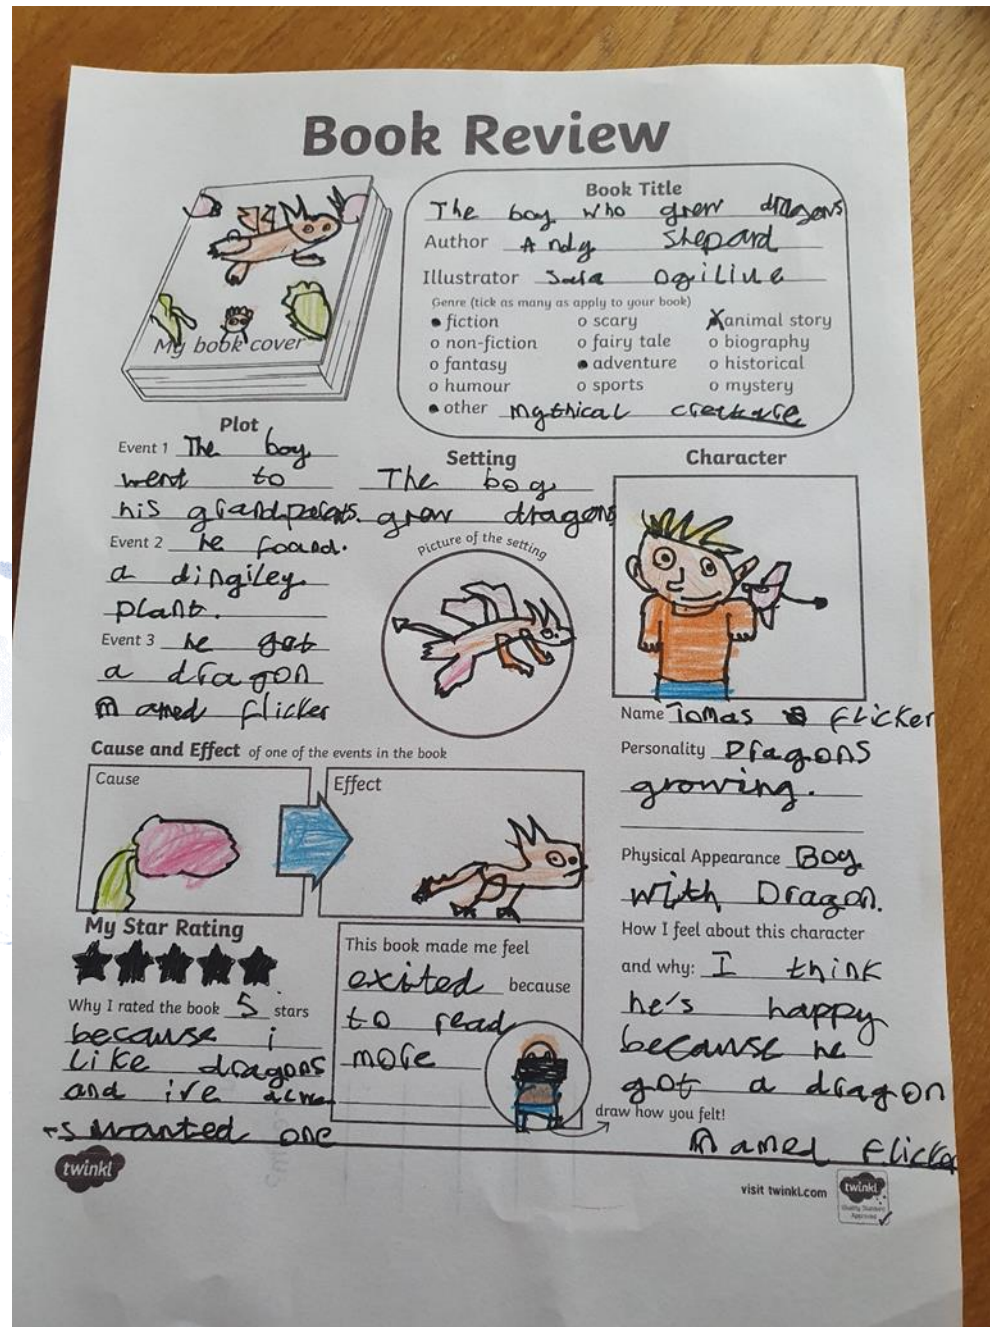 Book Review
Book Title
The boy who grow dragons
Author Andy Shepard
Illustrator Sara Ogilive
Genre (tick as many as apply to your book)
fiction
o non-fiction
o fantasy
o humour
o scary
o fairy tale
adventure
o sports
animal story
o biography
o historical
o mystery
other Mythical
My book cover
Plot
Event 1 The boy
went to
his grandparents.
Event 2 he foond.
a dingiley
plant.
Event 3 he got
a dragon
named flicker
Setting
The boy
grow dragons
Picture of the setting
Character
Name Tomas flicker
Personality Dragons
growing.
Physical Appearance Boy
with Dragon.
How I feel about this character
and why: I think
he's happy
because he
got a dragon
named flicker
Cause and Effect of one of the events in the book
Cause
Effect
My Star Rating
Why I rated the book 5 stars
because i
like dragons
and i've
wanted one
This book made me feel
exited because
to read
more
draw how you felt!
twinkl
visit twinkl.com
twinkl
Quality Standard
Approved